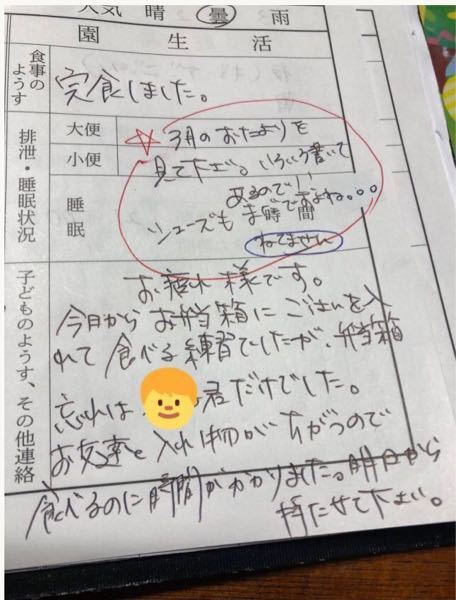 天気 晴 曇 雨
園生活
食事のようす
完食しました。
排泄・睡眠状況
大便
小便
睡眠
☆3月のおたよりを
見て下さい。いろいろ書いて
あるので!!
シューズもまだですよね。。。
時間
ねてません
子どものようす、その他連絡
お疲れ様です。
今日からお弁当箱にごはんを入
れて食べる練習でしたが、弁当箱
忘れは 君だけでした。
お友達と入れ物がちがうので
食べるのに時間がかかりました。明日から
持たせて下さい。